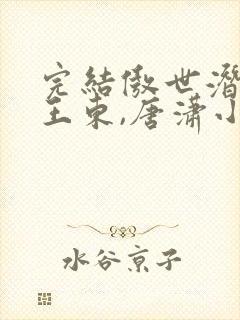 完結傲世潛
王東,唐瀟小
水谷京子